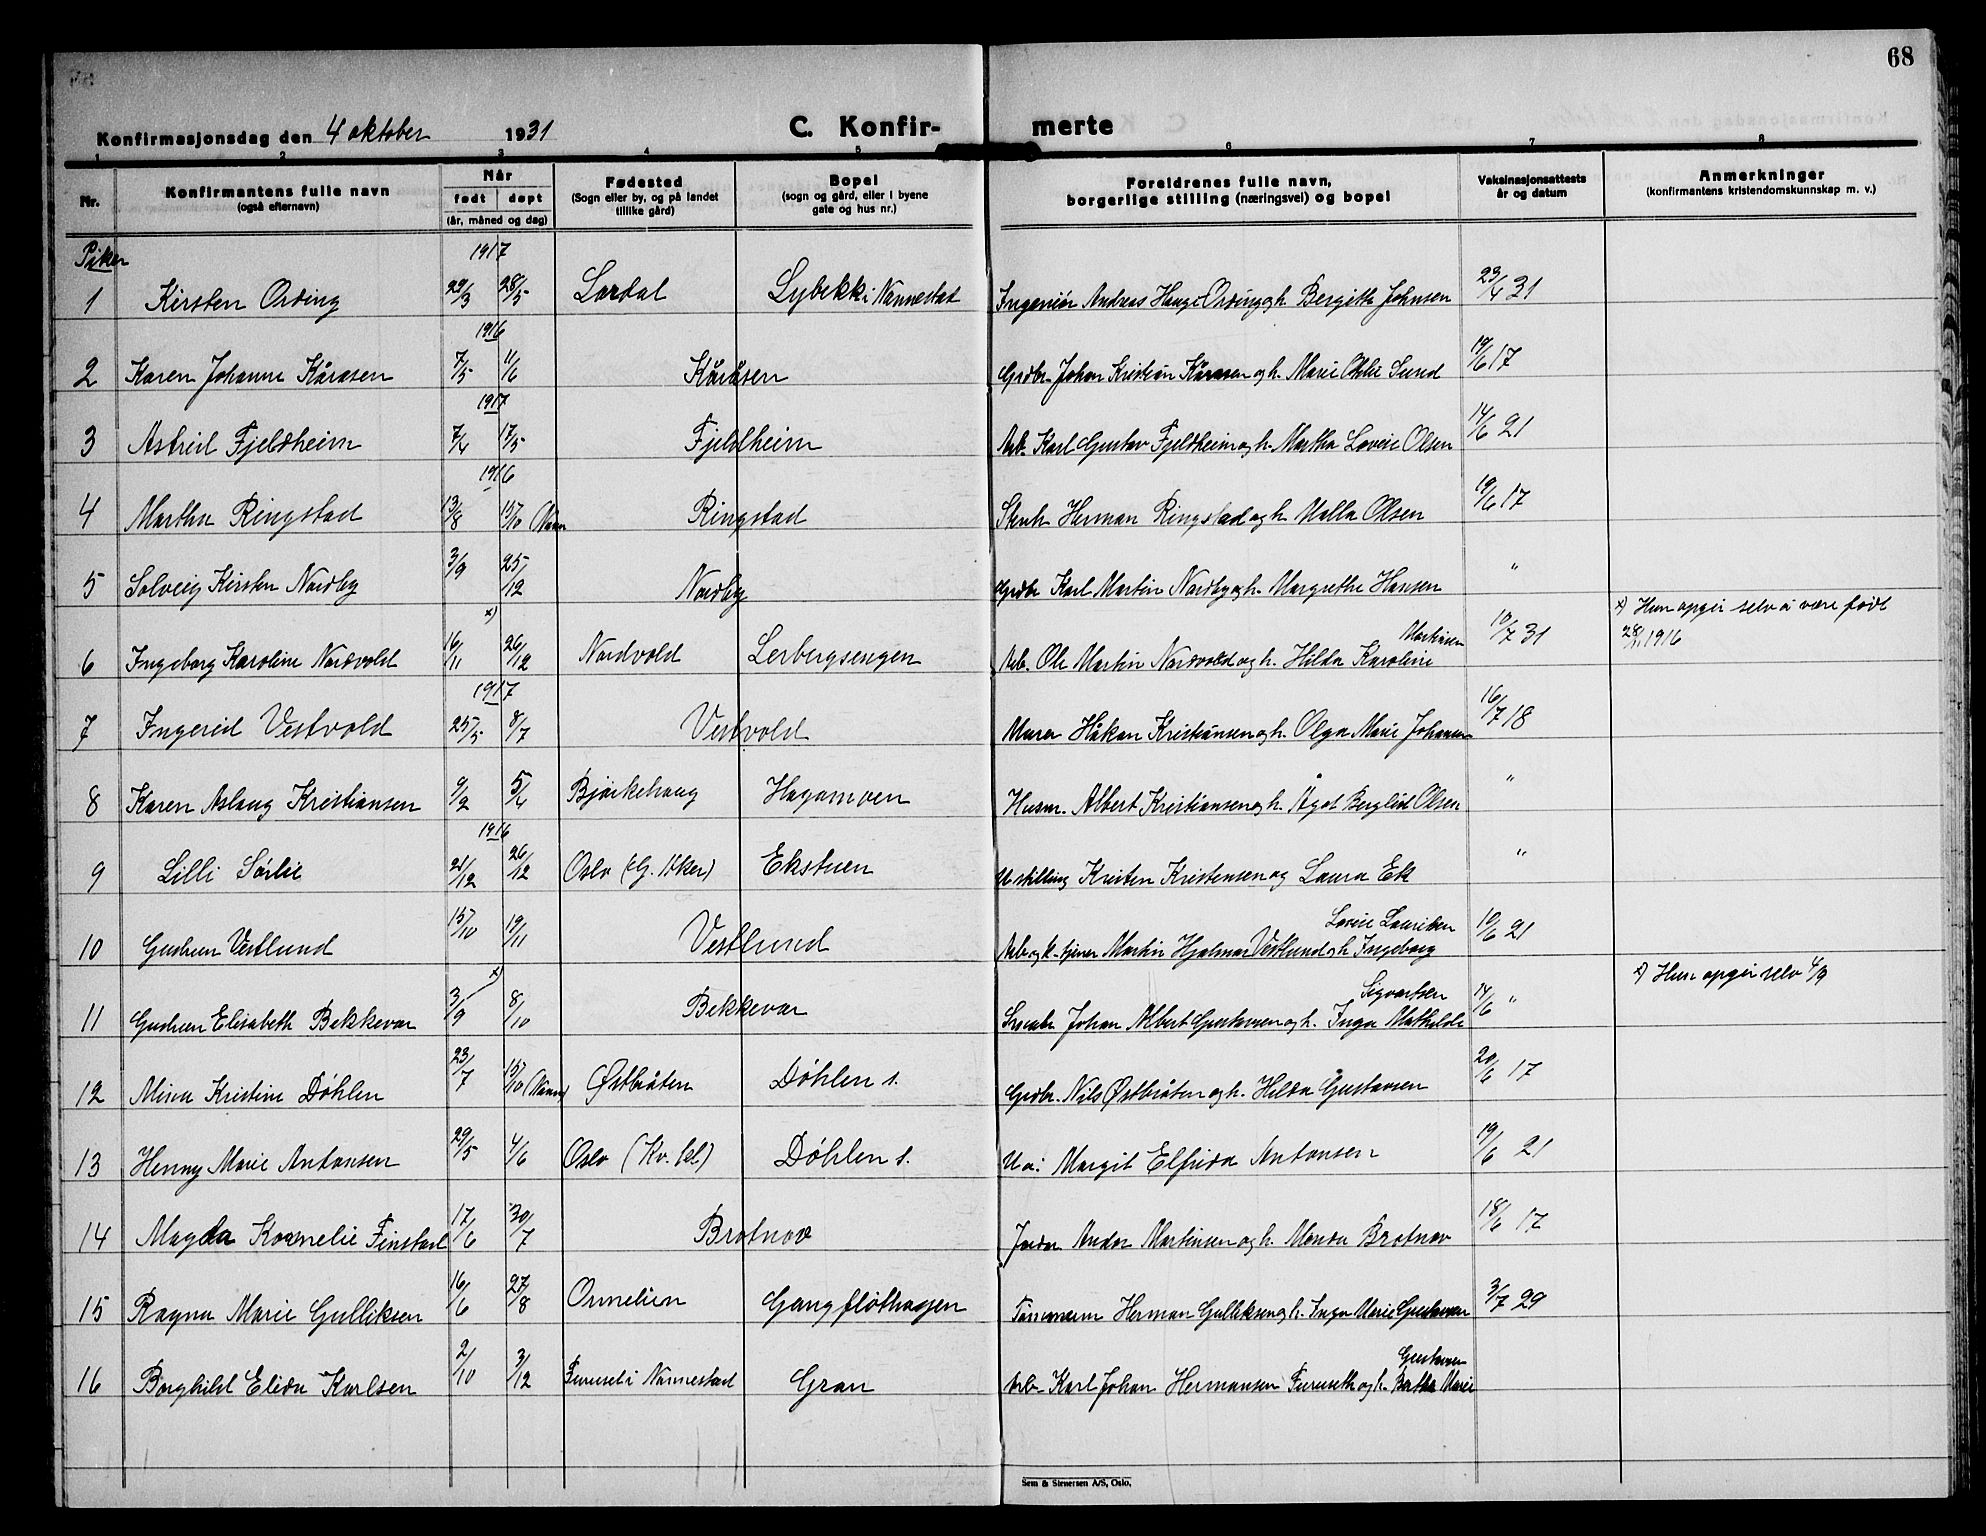 68
Konfirmasjonsdag den 4 oktober 1931
C. Konfir- merte
1 2 3 4 5 6 7 8
Nr. Konfirmantens fulle navn (også efternavn) Når født døpt (år, måned og dag) Fødested (Sogn eller by, og på landet tillike gård) Bopel (sogn og gård, eller i byene gate og hus nr.) Foreldrenes fulle navn, borgerlige stilling (næringsvei) og bopel Vaksinasjonsattests år og datum Anmerkninger (konfirmantens kristendomskunnskap m. v.)
Piker
1917
1 Kirsten Ording 29/3 28/5 Lardal Lybekk i Nannestad Ingeniør Andreas Hauge Ording og h. Bergitte Johnsen 23/4 31
1916
2 Karen Johanne Kåråsen 7/5 11/6 Kåråsen Grdbr. Johan Kristian Kåråsen og h. Marie Othlie Lund 19/6 17
1917
3 Astrid Fjeldheim 7/4 17/5 Fjeldheim Arb. Karl Gustav Fjeldheim og h. Martha Lovise Olsen 14/6 21
1916
4 Martha Ringstad 13/8 15/10 (Nann Ringstad Herman Ringstad og h. Valla Olsen 19/6 17
5 Solveig Kirsten Nordby 3/9 25/12 Nordby Grdbr Karl Martin Nordby og h. Margrethe Hansen "
6 Ingeborg Karoline Nordvold 16/11 x) 26/12 Nordvold Lerbergsengen Arb. Ole Martin Nordvold og h. Hilda Karoline Martinsen 10/7 31 x) Hun opgir selv å være født 28/11 1916
1917
7 Ingerid Vestvold 25/5 8/7 Vestvold Murer Håkon Kristiansen og h. Olga Marie Johansen 16/7 18
8 Karen Aslaug Kristiansen 9/2 5/4 Bjørkehaug Hagamoen Husm. Albert Kristiansen og h. Ågot Bergliot Olsen "
1916
9 Lilli Sørlie 21/12 26/12 Oslo (G. Aker) Ekstuen U. stilling Kristen Kristensen og Laura Ek "
10 Gudrun Vestlund 15/10 19/11 Vestlund Arb og k-tjener Martin Hjalmar Vestlund og h. Ingeborg Lovise Lauritsen 10/6 21
11 Gudrun Elisabeth Bekkevar 3/9 x) 8/10 Bekkevar Johan Albert Gustavsen og h. Inga Mathilde Sigvartsen 14/6 " x) Hun opgir selv 4/9
12 Mina Kristine Døhlen 23/7 15/10 (Nann) Østbråten Døhlen s. Grdbr. Nils Østbråten og h. Hilda Gustavsen 20/6 17
13 Henny Marie Antonsen 29/5 4/6 Oslo (Kv. kl) Døhlen s. U a: Margit Elfrida Antonsen 19/6 21
14 Magda Kornelie Finstad 17/6 30/7 Brotnov Andor Martinsen og h. Manda Brotnov 18/6 17
15 Ragna Marie Gulliksen 16/6 27/8 Ormelien Gangfløthagen Herman Gulliksen og h. Inga Marie Gustavsen 3/7 29
16 Borghild Elida Karlsen 2/10 3/12 Furuset i Nannestad Gran Arb Karl Johan Hermansen Furuseth og h. Bertha Marie Gustavsen
Sem & Stenersen A/S, Oslo.